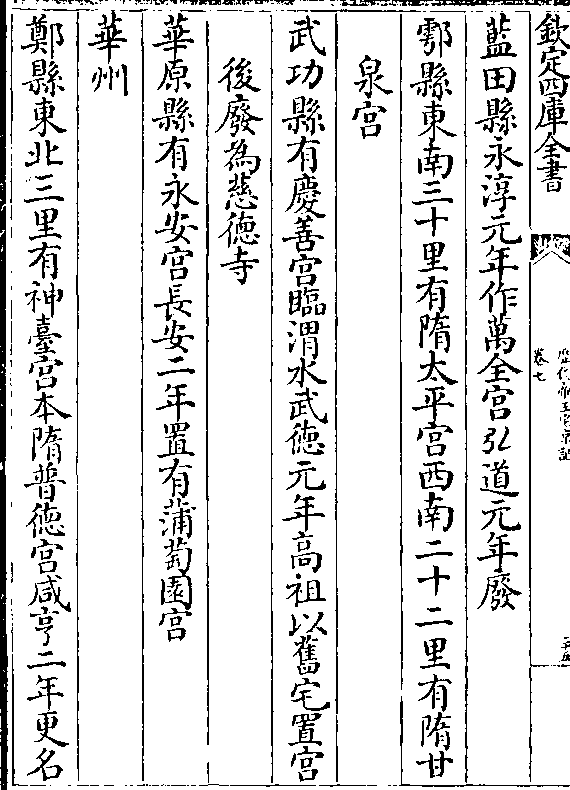 欽定四庫全書
歷代帝王宅京記
卷七
藍田縣永淳元年作萬全宫弘道元年廢
鄠縣東南三十里有隋太平宫西南二十二里有隋甘
泉宫
武功縣有慶善宫臨渭水武徳元年高祖以舊宅置宫
後廢為慈徳寺
華原縣有永安宫長安二年置有蒲萄園宫
華州
鄭縣東北三里有神臺宫本隋普徳宫咸亨二年更名